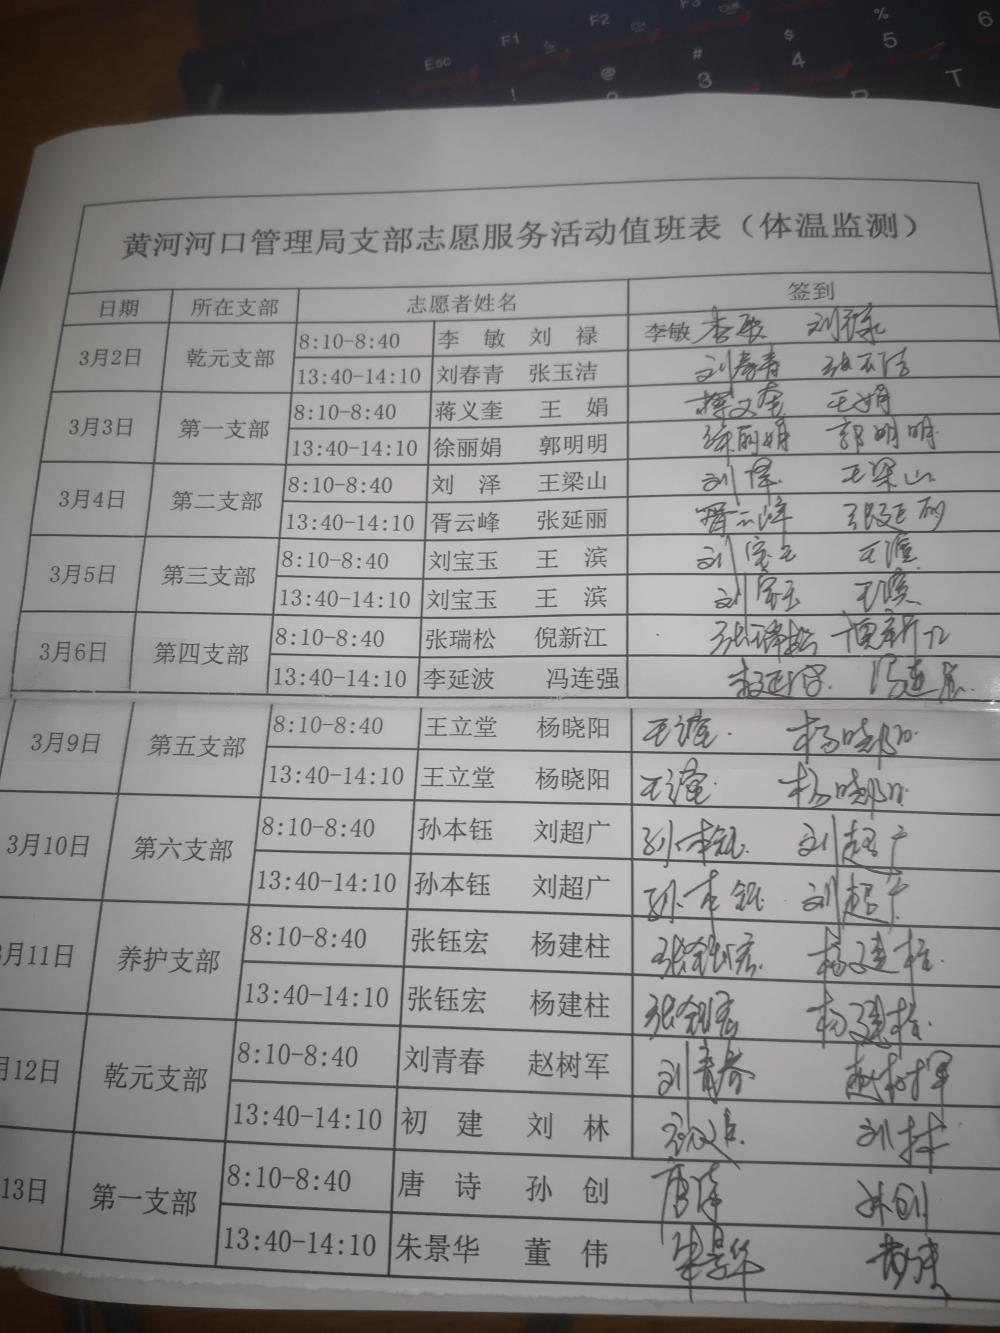 Esc F1 F2 F3
! @ # 3 $ 4 % 5 6 T
黄河河口管理局支部志愿服务活动值班表（体温监测）
日期 所在支部 志愿者姓名 签到
3月2日 乾元支部 8:10-8:40 李 敏 刘 禄 李敏 李敏 刘禄
13:40-14:10 刘春青 张玉洁 刘春青 张玉洁
3月3日 第一支部 8:10-8:40 蒋义奎 王 娟 蒋义奎 王娟
13:40-14:10 徐丽娟 郭明明 徐丽娟 郭明明
3月4日 第二支部 8:10-8:40 刘 泽 王梁山 刘泽 王梁山
13:40-14:10 胥云峰 张延丽 胥云峰 张延丽
3月5日 第三支部 8:10-8:40 刘宝玉 王 滨 刘宝玉 王滨
13:40-14:10 刘宝玉 王 滨 刘宝玉 王滨
3月6日 第四支部 8:10-8:40 张瑞松 倪新江 张瑞松 倪新江
13:40-14:10 李延波 冯连强 李延波 冯连强
3月9日 第五支部 8:10-8:40 王立堂 杨晓阳 杨晓阳
13:40-14:10 王立堂 杨晓阳 杨晓阳
3月10日 第六支部 8:10-8:40 孙本钰 刘超广 孙本钰 刘超广
13:40-14:10 孙本钰 刘超广 孙本钰 刘超广
月11日 养护支部 8:10-8:40 张钰宏 杨建柱 张钰宏 杨建柱
13:40-14:10 张钰宏 杨建柱 张钰宏 杨建柱
月12日 乾元支部 8:10-8:40 刘青春 赵树军 刘青春 赵树军
13:40-14:10 初 建 刘 林 刘林
13日 第一支部 8:10-8:40 唐 诗 孙 创 唐诗 孙创
13:40-14:10 朱景华 董 伟 朱景华